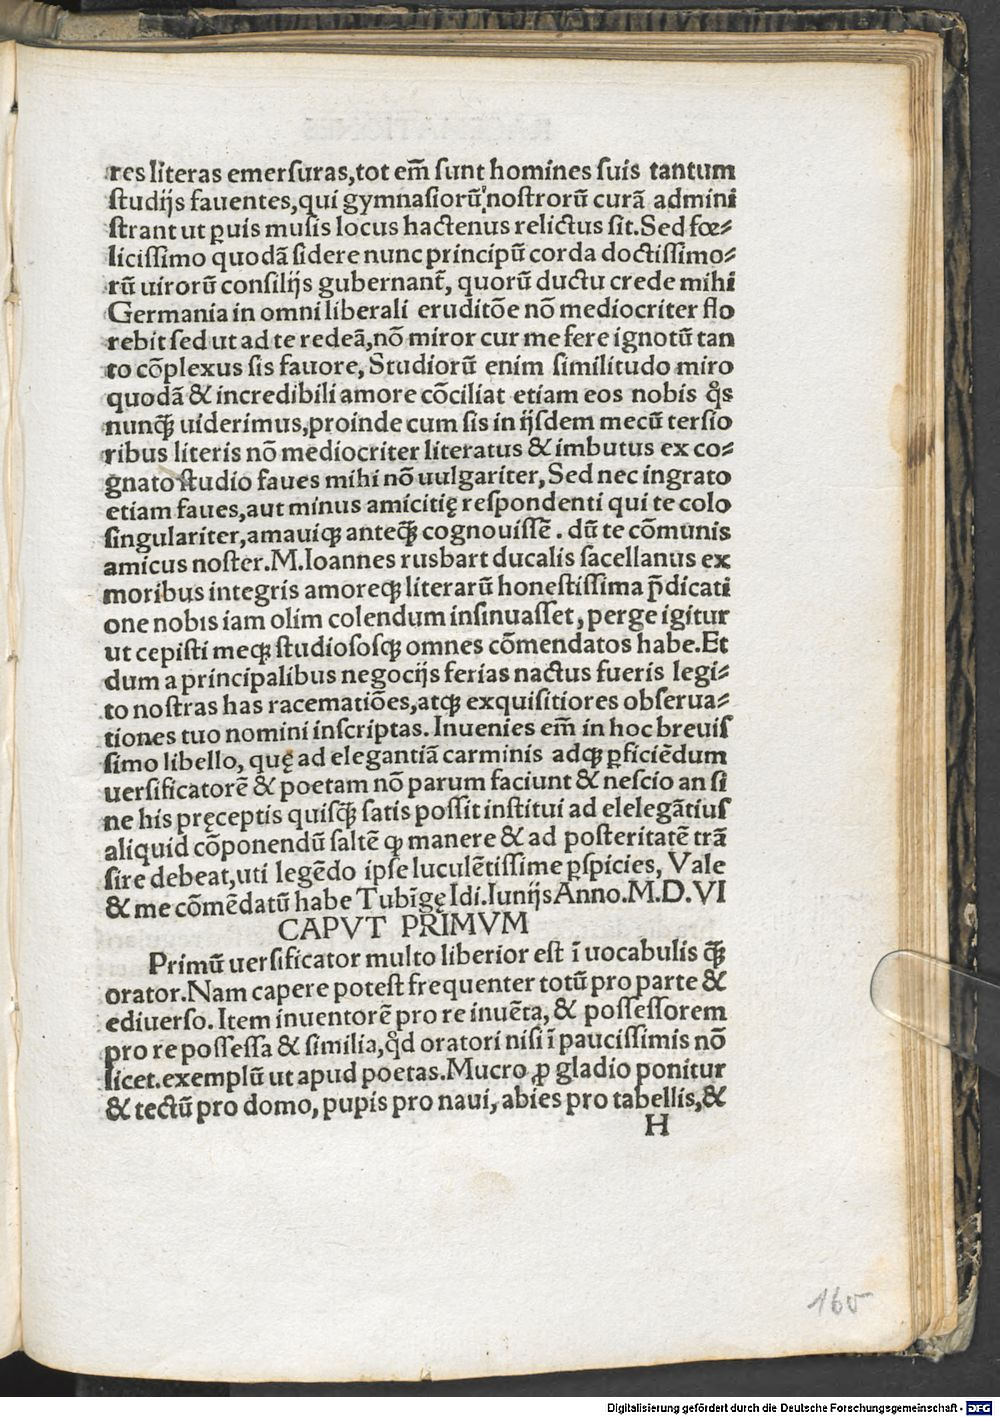 res literas emersuras,tot em̄ sunt homines suis tantum
studijs fauentes,qui gymnasiorū nostrorū curā admini
strant ut ꝑuis musis locus hactenus relictus sit.Sed fœ⸗
licissimo quodā sidere nunc principū corda doctissimo⸗
rū uirorū consilijs gubernant̄, quorū ductu crede mihi
Germania in omni liberali eruditōe nō mediocriter flo
rebit sed ut ad te redeā,nō miror cur me fere ignotū tan
to cōplexus sis fauore, Studiorū enim similitudo miro
quodā & incredibili amore cōciliat etiam eos nobis q̊s
nunqꝫ̄ uiderimus,proinde cum sis in ijsdem mecū tersio
ribus literis nō mediocriter literatus & imbutus ex co⸗
gnato studio faues mihi nō uulgariter, Sed nec ingrato
etiam faues,aut minus amicitię respondenti qui te colo
singulariter,amauiqꝫ anteqꝫ̄ cognouissē. dū te cōmunis
amicus noster.M.Ioannes rusbart ducalis sacellanus ex
moribus integris amoreqꝫ literarū honestissima p̄dicati
one nobis iam olim colendum insinuasset, perge igitur
ut cepisti meqꝫ studiososqꝫ omnes cōmendatos habe.Et
dum a principalibus negocijs ferias nactus fueris legi⸗
to nostras has racematiōes,atqꝫ exquisitiores obserua⸗
tiones tuo nomini inscriptas. Inuenies em̄ in hoc breuis
simo libello, quę ad elegantiā carminis adqꝫ ꝑficiēdum
uersificatorē & poetam nō parum faciunt & nescio an si
ne his pręceptis quisqꝫ̄ satis possit institui ad elelegātius
aliquid cōponendū saltē ꝙ manere & ad posteritatē trā
sire debeat,uti legēdo ipse luculētissime ꝑspicies, Vale
& me cōmēdatū habe Tubīgę Idi.Iunijs Anno.M.D.VI
CAPVT PRIMVM
Primū uersificator multo liberior est ī uocabulis qꝫ̄
orator.Nam capere potest frequenter totū pro parte &
ediuerso. Item inuentorē pro re inuēta, & possessorem
pro re possessa & similia,qd̊ oratori nisi ī paucissimis nō
licet.exemplū ut apud poetas.Mucro ꝓ gladio ponitur
& tectū pro domo, pupis pro naui, abies pro tabellis,&
H
165
Digitalisierung gefördert durch die Deutsche Forschungsgemeinschaft - DFG